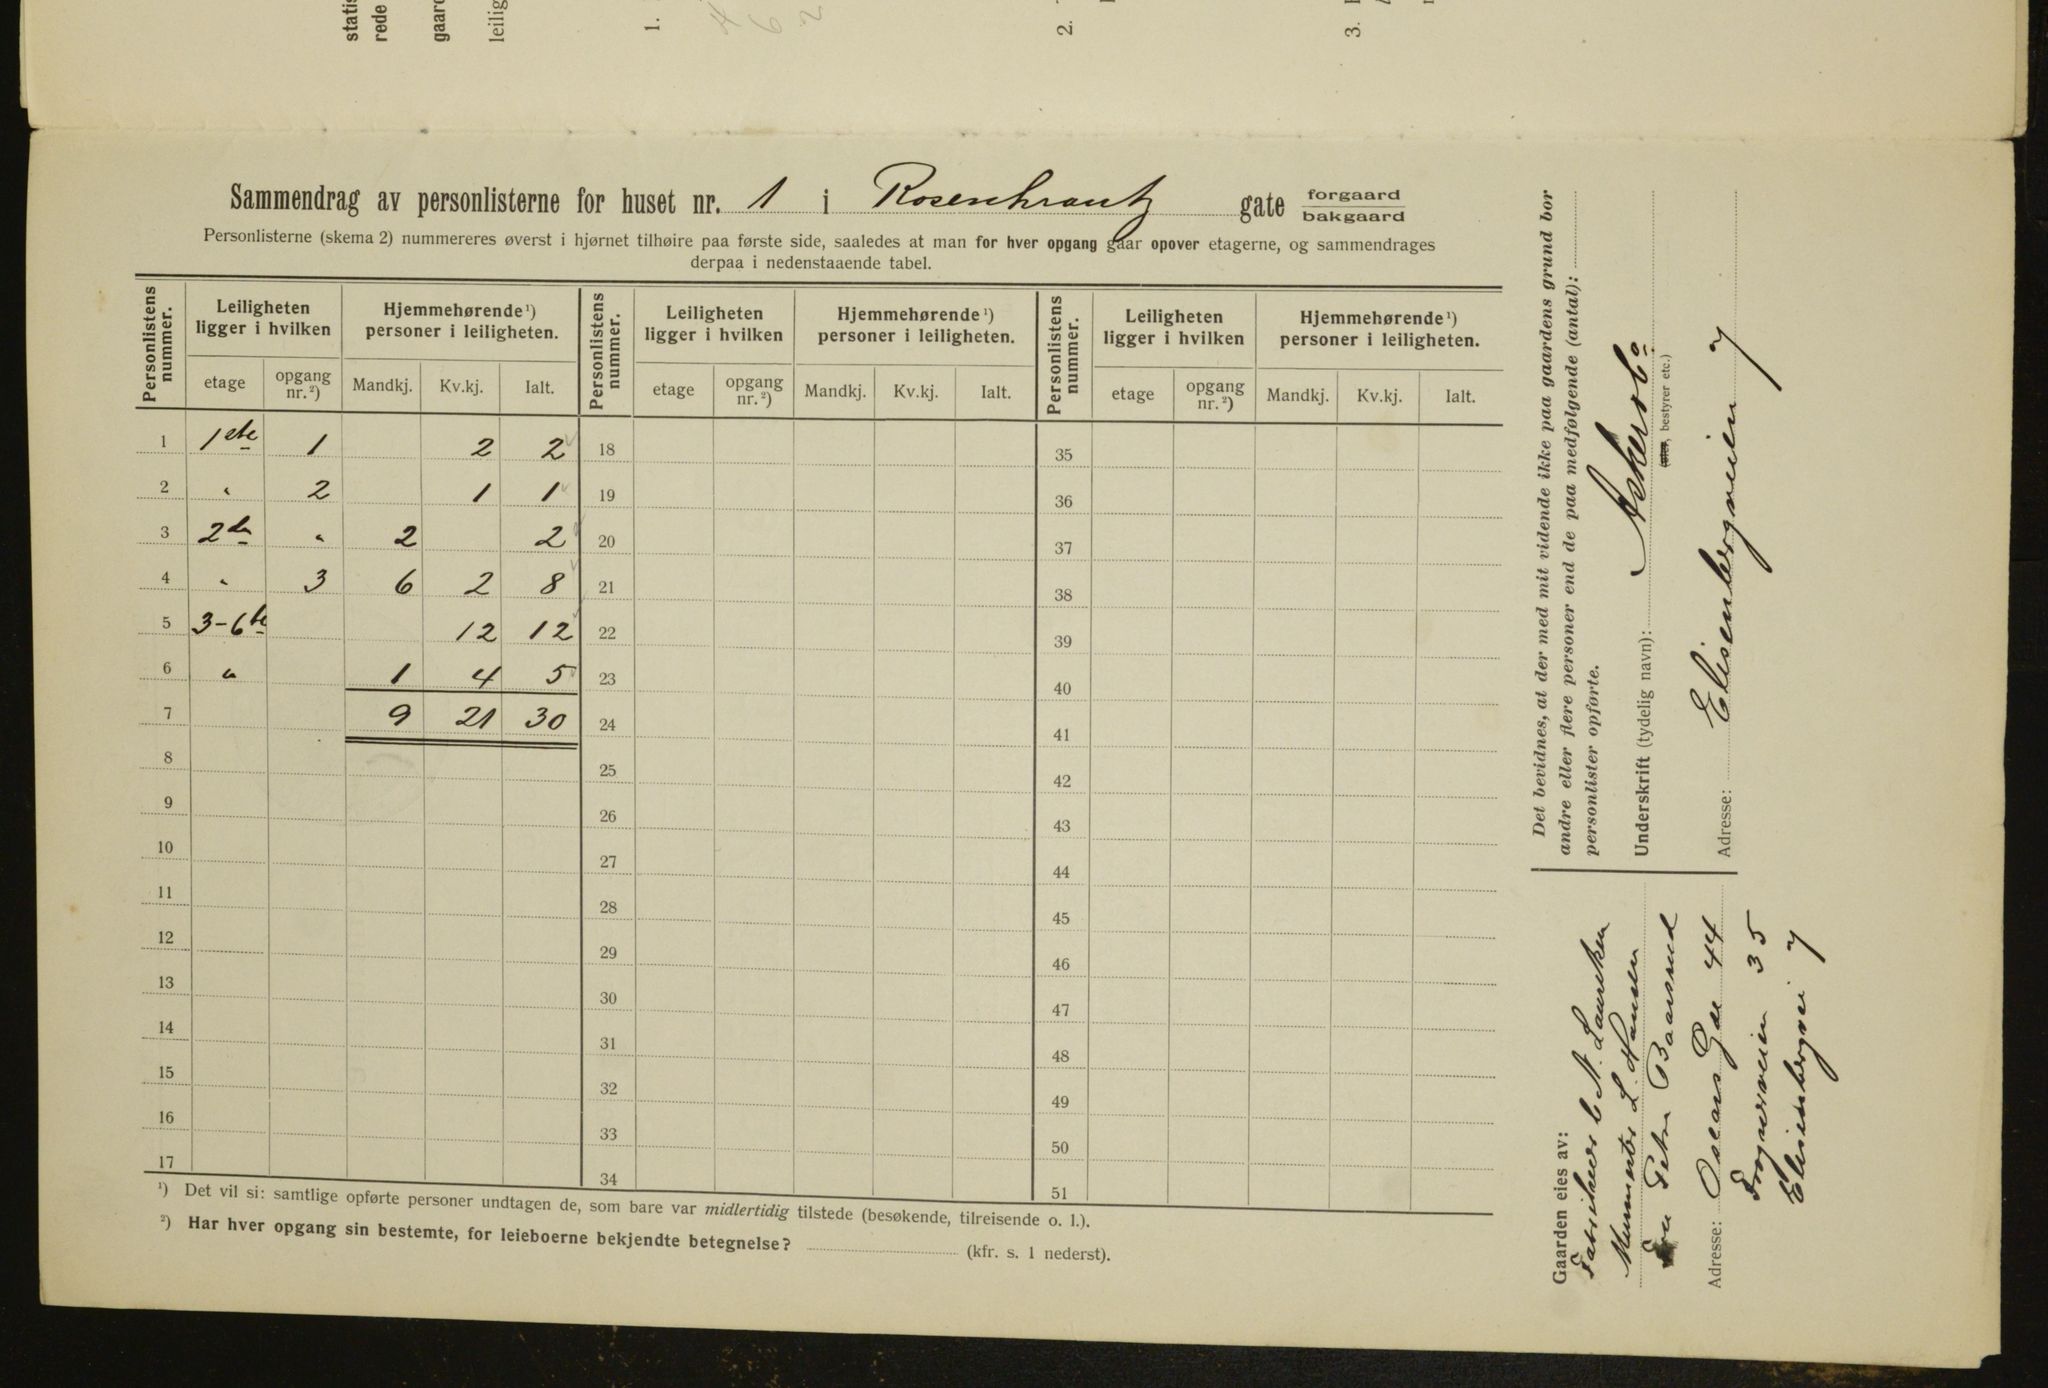 statis
rede
gaard
leilig
1.
4
6
2
2.
3.
Sammendrag av personlisterne for huset nr. 1 i Rosenkrantz gate forgaard
bakgaard
Personlisterne (skema 2) nummereres øverst i hjørnet tilhøire paa første side, saaledes at man for hver opgang gaar opover etagerne, og sammendrages
derpaa i nedenstaaende tabel.
Personlistens nummer. Leiligheten ligger i hvilken Hjemmehørende ¹) personer i leiligheten. Personlistens nummer. Leiligheten ligger i hvilken Hjemmehørende ¹) personer i leiligheten. Personlistens nummer. Leiligheten ligger i hvilken Hjemmehørende ¹) personer i leiligheten.
etage opgang nr. ²) Mandkj. Kv.kj. Ialt. etage opgang nr. ²) Mandkj. Kv.kj. Ialt. etage opgang nr. ²) Mandkj. Kv.kj. Ialt.
1 1ste 1 2 2 18 35
2 " 2 1 1 19 36
3 2den " 2 2 20 37
4 " 3 6 2 8 21 38
5 3-6te 12 12 22 39
6 " 1 4 5 23 40
7 9 21 30 24 41
8 25 42
9 26 43
10 27 44
11 28 45
12 29 46
13 30 47
14 31 48
15 32 49
16 33 50
17 34 51
¹) Det vil si: samtlige opførte personer undtagen de, som bare var midlertidig tilstede (besøkende, tilreisende o. l.).
²) Har hver opgang sin bestemte, for leieboerne bekjendte betegnelse? (kfr. s. 1 nederst).
Det bevidnes, at der med mit vidende ikke paa gaardens grund bor
andre eller flere personer end de paa medfølgende (antal):
personlister opførte.
Underskrift (tydelig navn):
(eier, bestyrer etc.)
Adresse: Elisenbergveien 7
Gaarden eies av:
Fabrikeier C. N. Lauritzen
Murmester L. Hansen
Fru Petra Baarsrud
Adresse: Oscars Gde 44
Frognerveien 35
Elisenbergvei 7